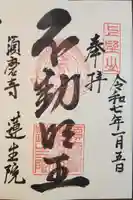 奉拝
令和七年一月五日
不動明王
須磨寺 蓮生院